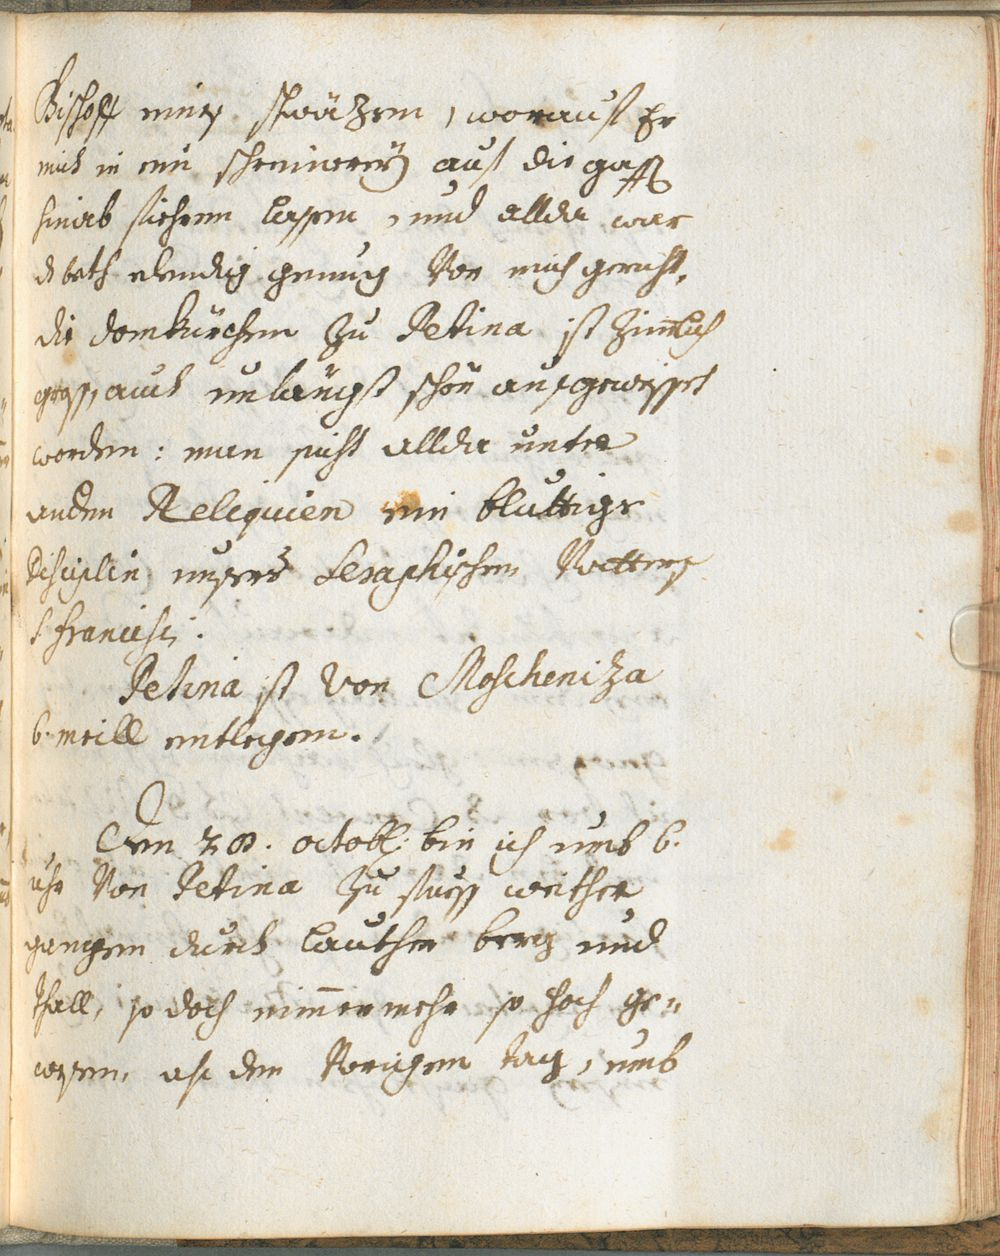 Bischoff mites schwäzen, worauf Er
mich in ein schreinerey auf die gass
hinab fiehren lassen, und allda war
d beth elendig genug vor mich gericht.
die domkürchen zu Petina ist zimlich
gross, auch unlängst schön ausgeweisset
worden: man sicht allda unter
anden Reliquien ein bluttige
Disciplin unsers Seraphischen Vatters
S Francisci.
Petina ist von Moscheniza
6. meill entlegen.
Den 28. octob: bin ich umb 6.
uhr von Petina zu fuess weither
gangen durch lauther berg und
thall, so doch nimmermehr so hoch ge=
wesen, als den vorigen tag, umb